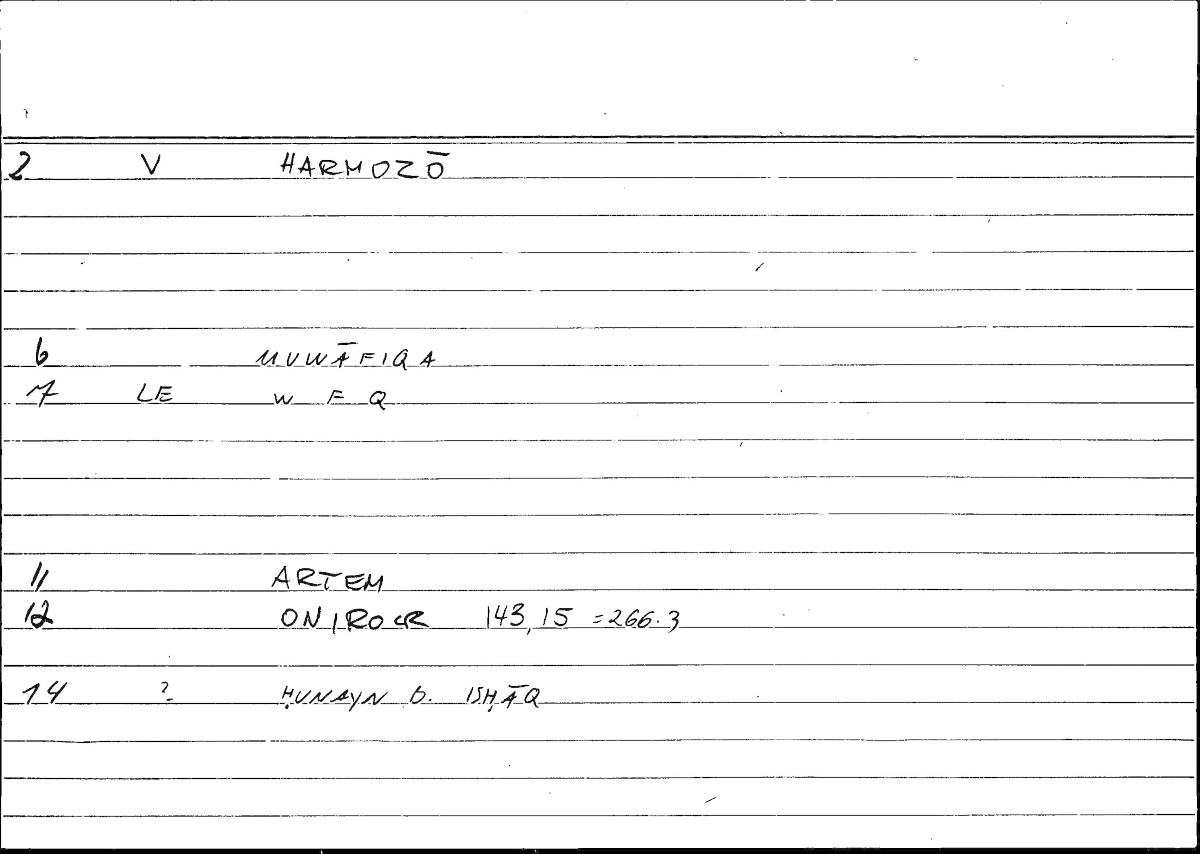 2 V HARMOZŌ
6 MUWĀFIQA
7 LE W F Q
11 ARTEM
12 ONIROCR 143,15 =266.3
14 ? ḤUNAYN b. ISḤĀQ